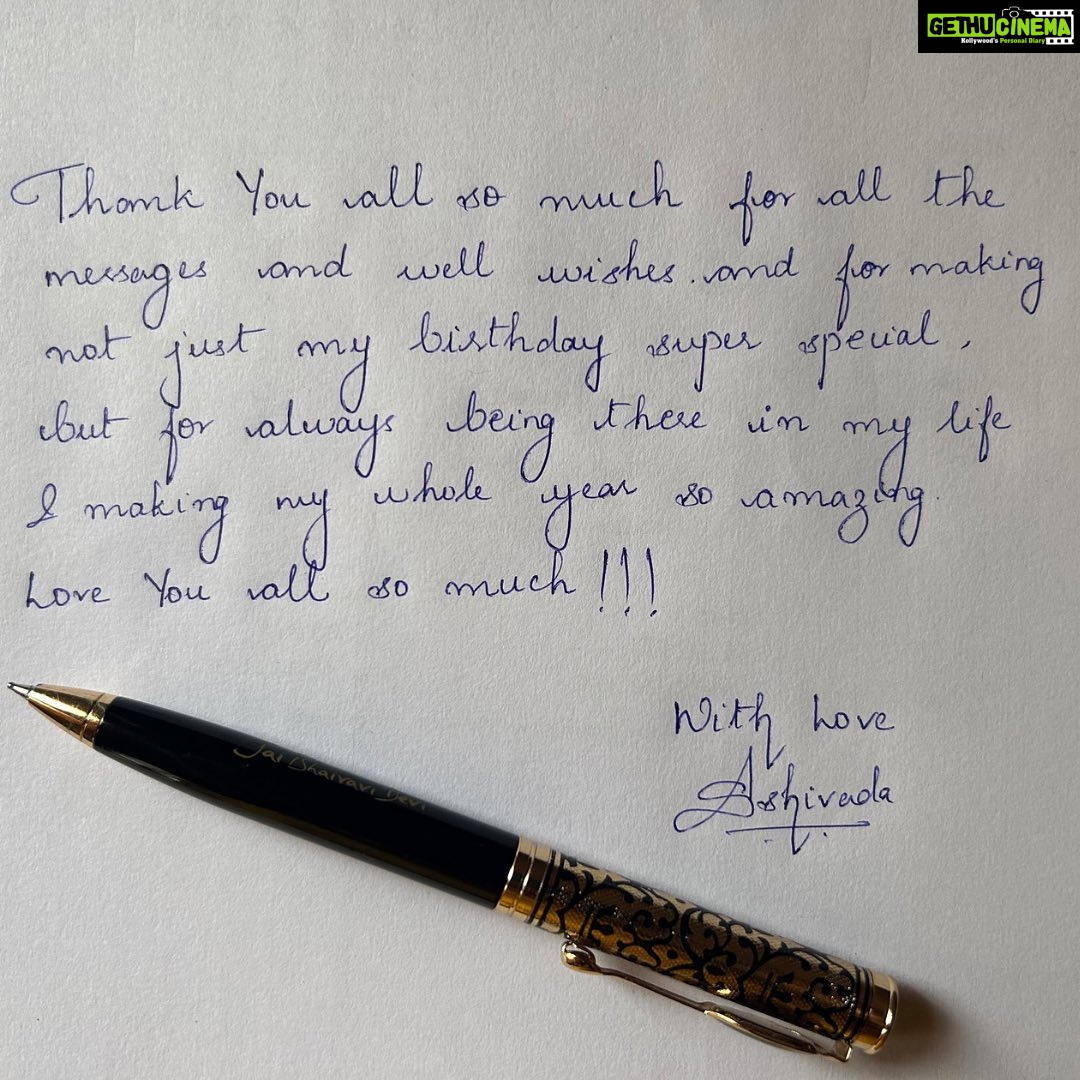 GETHUCINEMA
Kollywood's Personal Diary
Thank You all so much for all the
messages and well wishes. and for making
not just my birthday super special,
but for always being there in my life
& making my whole year so amazing.
Love You all so much !!!
With Love
Sshivada
Jai Bhairavi Devi